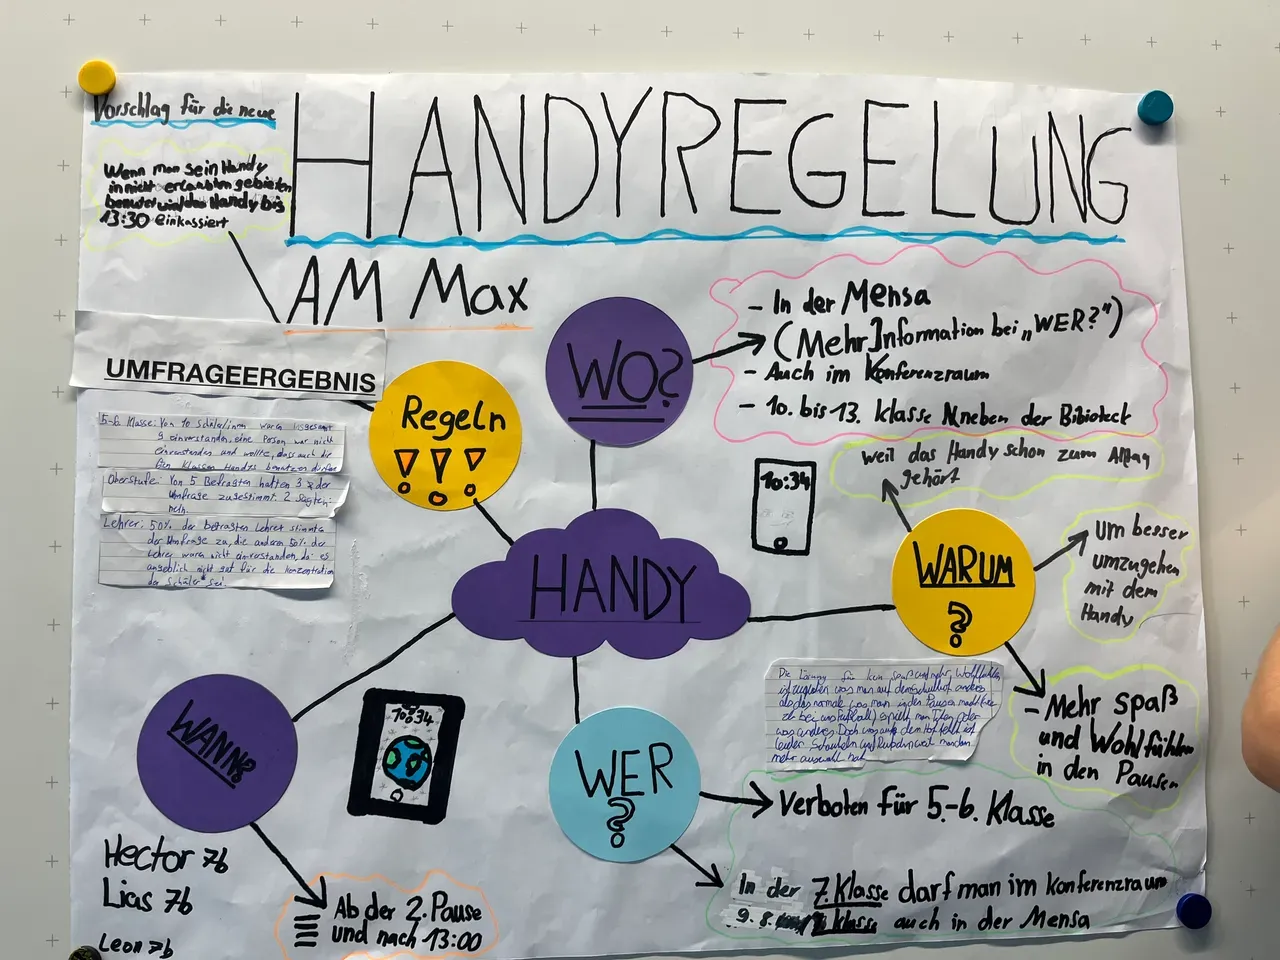 Vorschlag für die neue
HANDYREGELUNG
AM Max
Wenn man sein Handy
in nicht erlaubten gebieten
benutzt wird das Handy bis
13:30 einkassiert
UMFRAGEERGEBNIS
5-6. Klasse: Von 10 Schüler/innen waren insgesamt
9 einverstanden, eine Person war nicht
einverstanden und wollte, dass auch die
Klassen Handys benutzen dürfen
Oberstufe: Von 5 Befragten hatten 3 der
Umfrage zugestimmt. 2 sagten:
nein.
Lehrer: 50% der befragten Lehrer stimmten
der Umfrage zu, die anderen 50% der
Lehrer waren nicht einverstanden, da es
angeblich nicht gut für die Konzentration
der Schüler sei.
Regeln
!!!
WO?
- In der Mensa
(Mehr Information bei „WER?")
- Auch im Konferenzraum
- 10. bis 13. Klasse neben der Bibioteck
HANDY
10:34
WARUM
?
weil das Handy schon zum Alltag
gehört
um besser
umzugehen
mit dem
Handy
- Mehr Spaß
und Wohlfühlen
in den Pausen
Die Lösung für kein Spaß und mehr Wohlfühlen
ist zugleben was man auf dem Schulhof anderes
als das normale was man in den Pausen macht
bei uns Fußball) spielt man
was anderes Doch was auf dem Hof fehlt ist
leider Schaukeln und weil man dann
mehr auswahl hat
WER
?
Verboten für 5.-6. Klasse
In der 7. Klasse darf man im Konferenzraum
9. 8. Klasse auch in der Mensa
WANN?
10:34
Ab der 2. Pause
und nach 13:00
Hector 7b
Lias 7b
Leon 7b